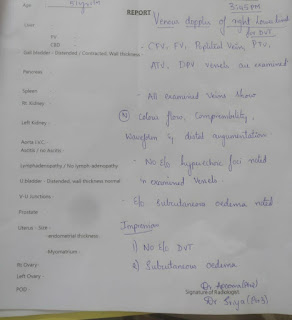 Age
REPORT
3:45PM
Venous doppler of right lower limb
for DVT.
Liver
PV -
CBD
- CFV, FV, Popliteal Vein, PTV,
Gall bladder - Distended / Contracted, Wall thickness
ATV, DPV vessels are examined
Pancreas -
Spleen
- All examined Veins show
Rt. Kidney -
(N) Colour flow, Compressibility,
Left Kidney -
Waveform & distal augmentation.
Aorta / I.V.C. -
Ascitis / No Ascitis -
Lymphadenopathy / No lymph adenopathy
- No E/o hypoechoic foci noted
U.bladder - Distended, wall thickness normal
n examined Vessels -
V-U Junctions -
- E/o Subcutaneous oedema noted
Prostate
Uterus - Size -
Impression
-endometrial thickness -
1) No E/o DVT
-Myometrium -
2) Subcutaneous oedema
Rt Ovary-
Left Ovary -
POD
Signature of Radiologist